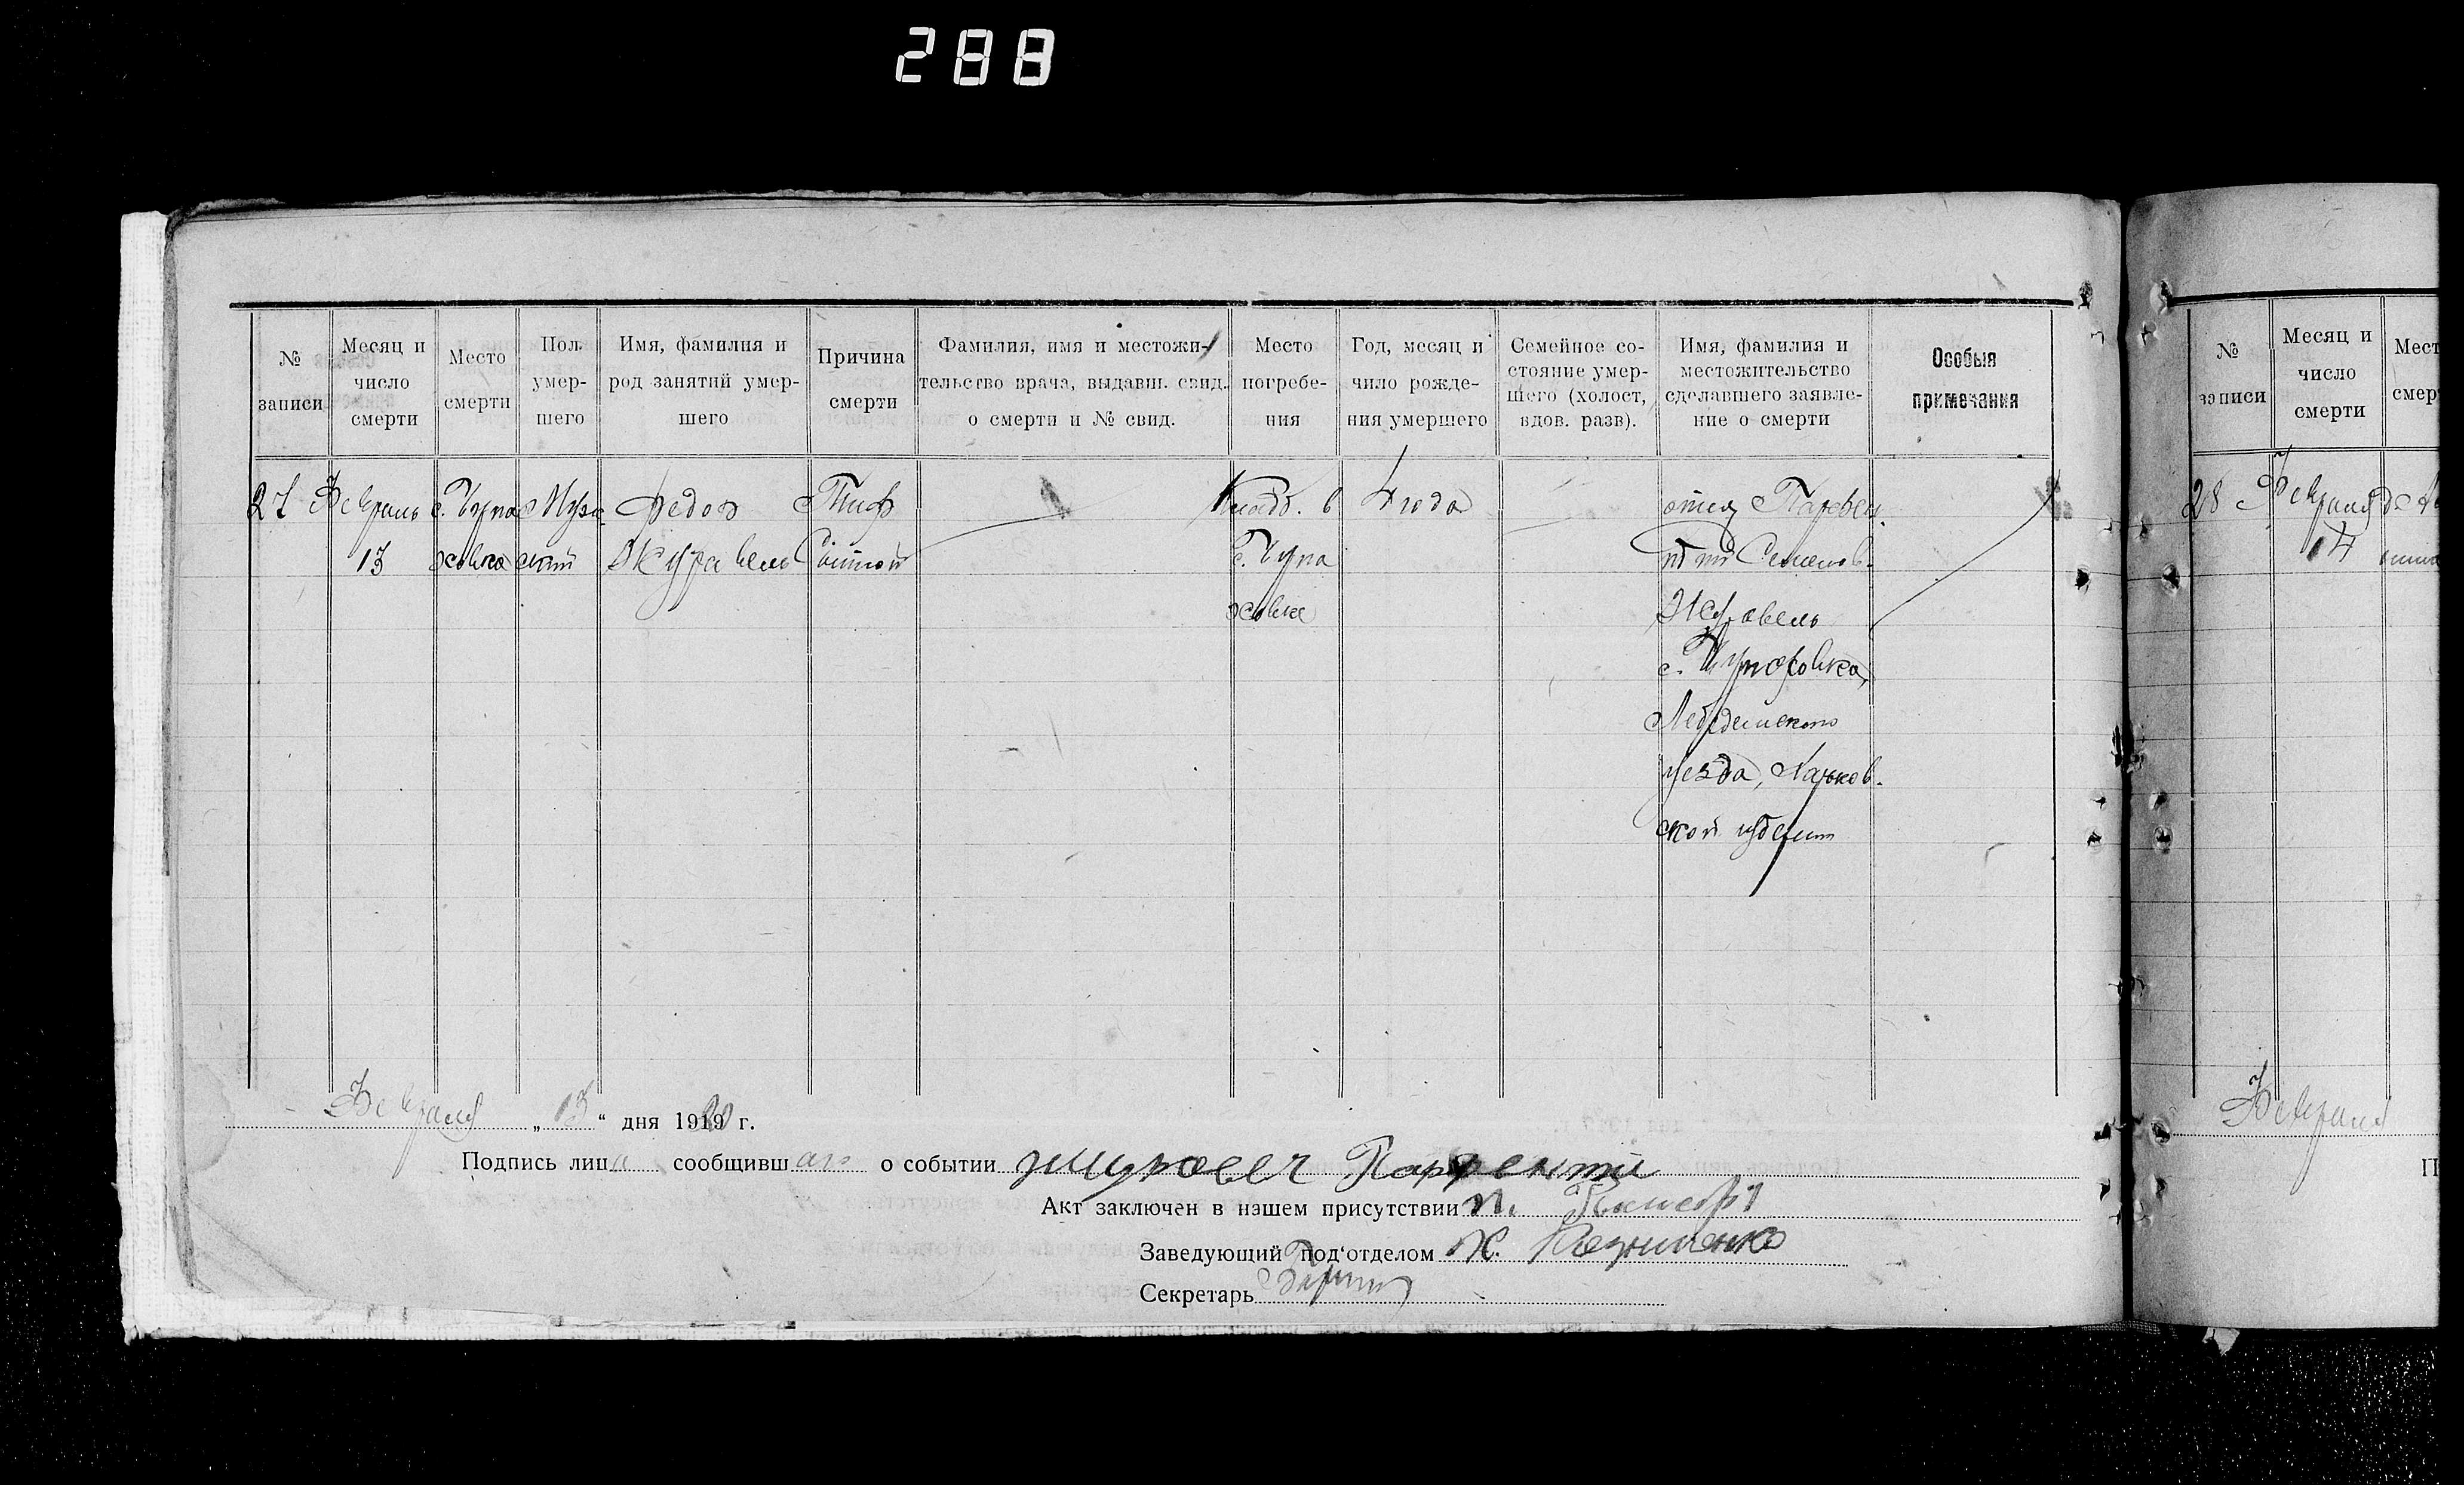 288
№ записи
Месяц и число смерти
Место смерти
Пол. умер- шего
Имя, фамилия и род занятий умер- шего
Причина смерти
Фамилия, имя и местожи- тельство врача, выдавш. свид. о смерти и № свид.
Место погребе- ния
Год, месяц и чило рожде- ния умершего
Семейное со- стояние умер- шего (холост, вдов. разв).
Имя, фамилия и местожительство сделавшего заявле- ние о смерти
Особыя примечания
27
Февраль
13
с. Чупа
ховка
Муж
ский
Федор
Журавель
Тиф
Сыпной
Кладб. в
с. Чупа
ховке
4 года
отец Парфен.
тий Семенов.
Журавель
с. Чупаховка,
Лебединского
уезда, Харьков.
ской губернии
Февраля „ 13 “ дня 1920 г.
Подпись лица сообщившаго о событии Журавель Парфентий
Акт заключен в нашем присутствии П.
Заведующий под‘отделом
Секретарь
№ записи
Месяц и число смерти
Мест
смер
28
Февраля
14
Февраля
П